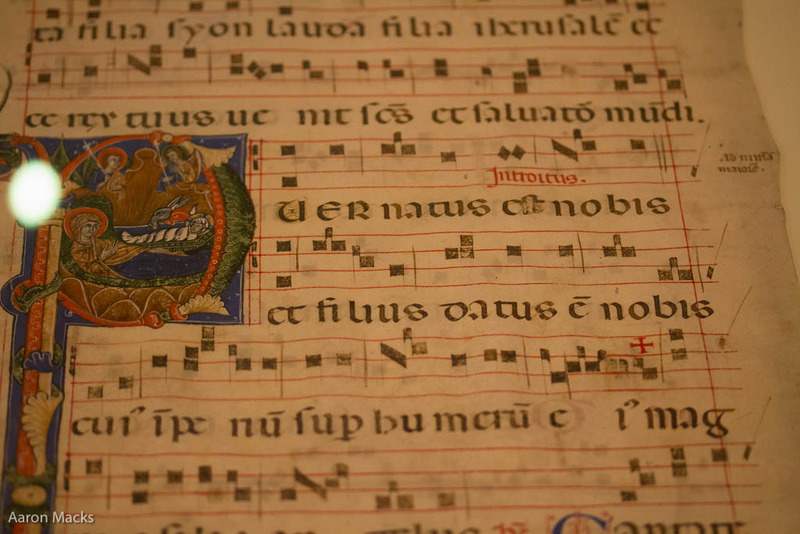 ta filia syon lauda filia iherusalē ec
ce rex tuus ue nit scs̄ et saluatō mūdi.
Ad missā
maiorē.
Introitus.
PUER natus est nobis
et filius datus ē nobis
cuiꝰ īpe riū sup hu merū e iꝰ mag
Cantate
Aaron Macks